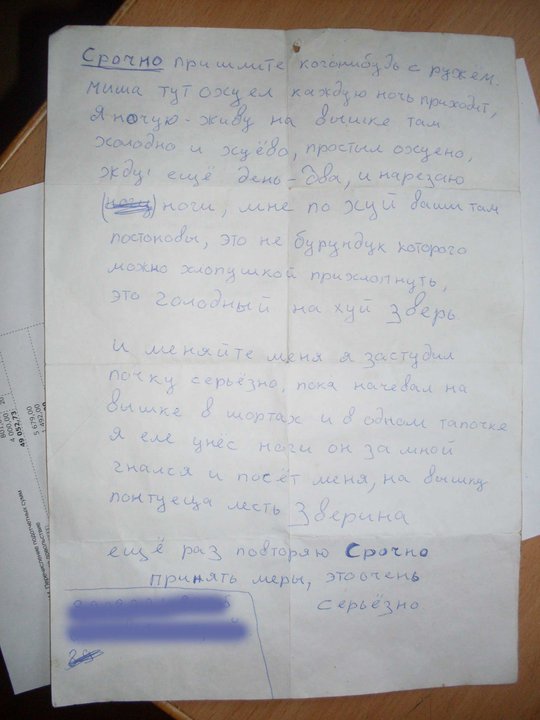 Срочно пришлите когонибудь с ружем.
миша тут охуел каждую ночь приходит,
Я ночую - живу на вышке там
холодно и хуёво, простыл охуено,
жду ещё день - два, и нарезаю
ноги, мне по хуй ваши там
постоковы, это не бурундук которого
можно хлопушкой прихлопнуть,
это голодный на хуй зверь.
и меняйте меня я застудил
почку серьёзно, пока начевал на
вышке в шортах и в одном тапочке
Я еле унёс ноги он за мной
гнался и посёт меня, на вышку
понтуеща лесть Зверина
ещё раз повторяю Срочно
принять меры, это очень
серьёзно
49 052,73